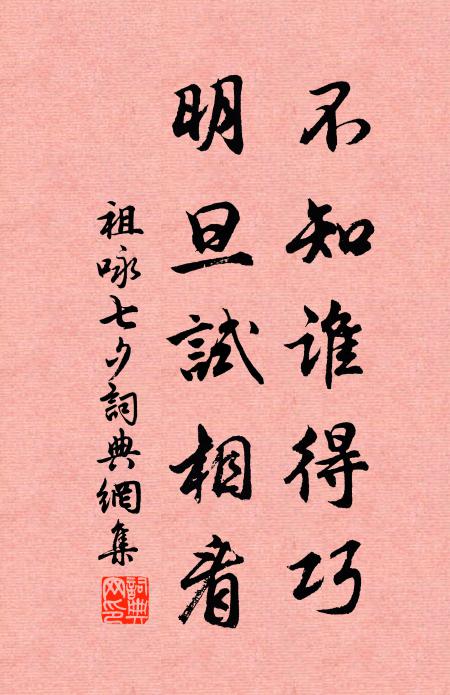 不知谁得巧
明旦試相看
祖咏七夕詞典網集
詞典網印